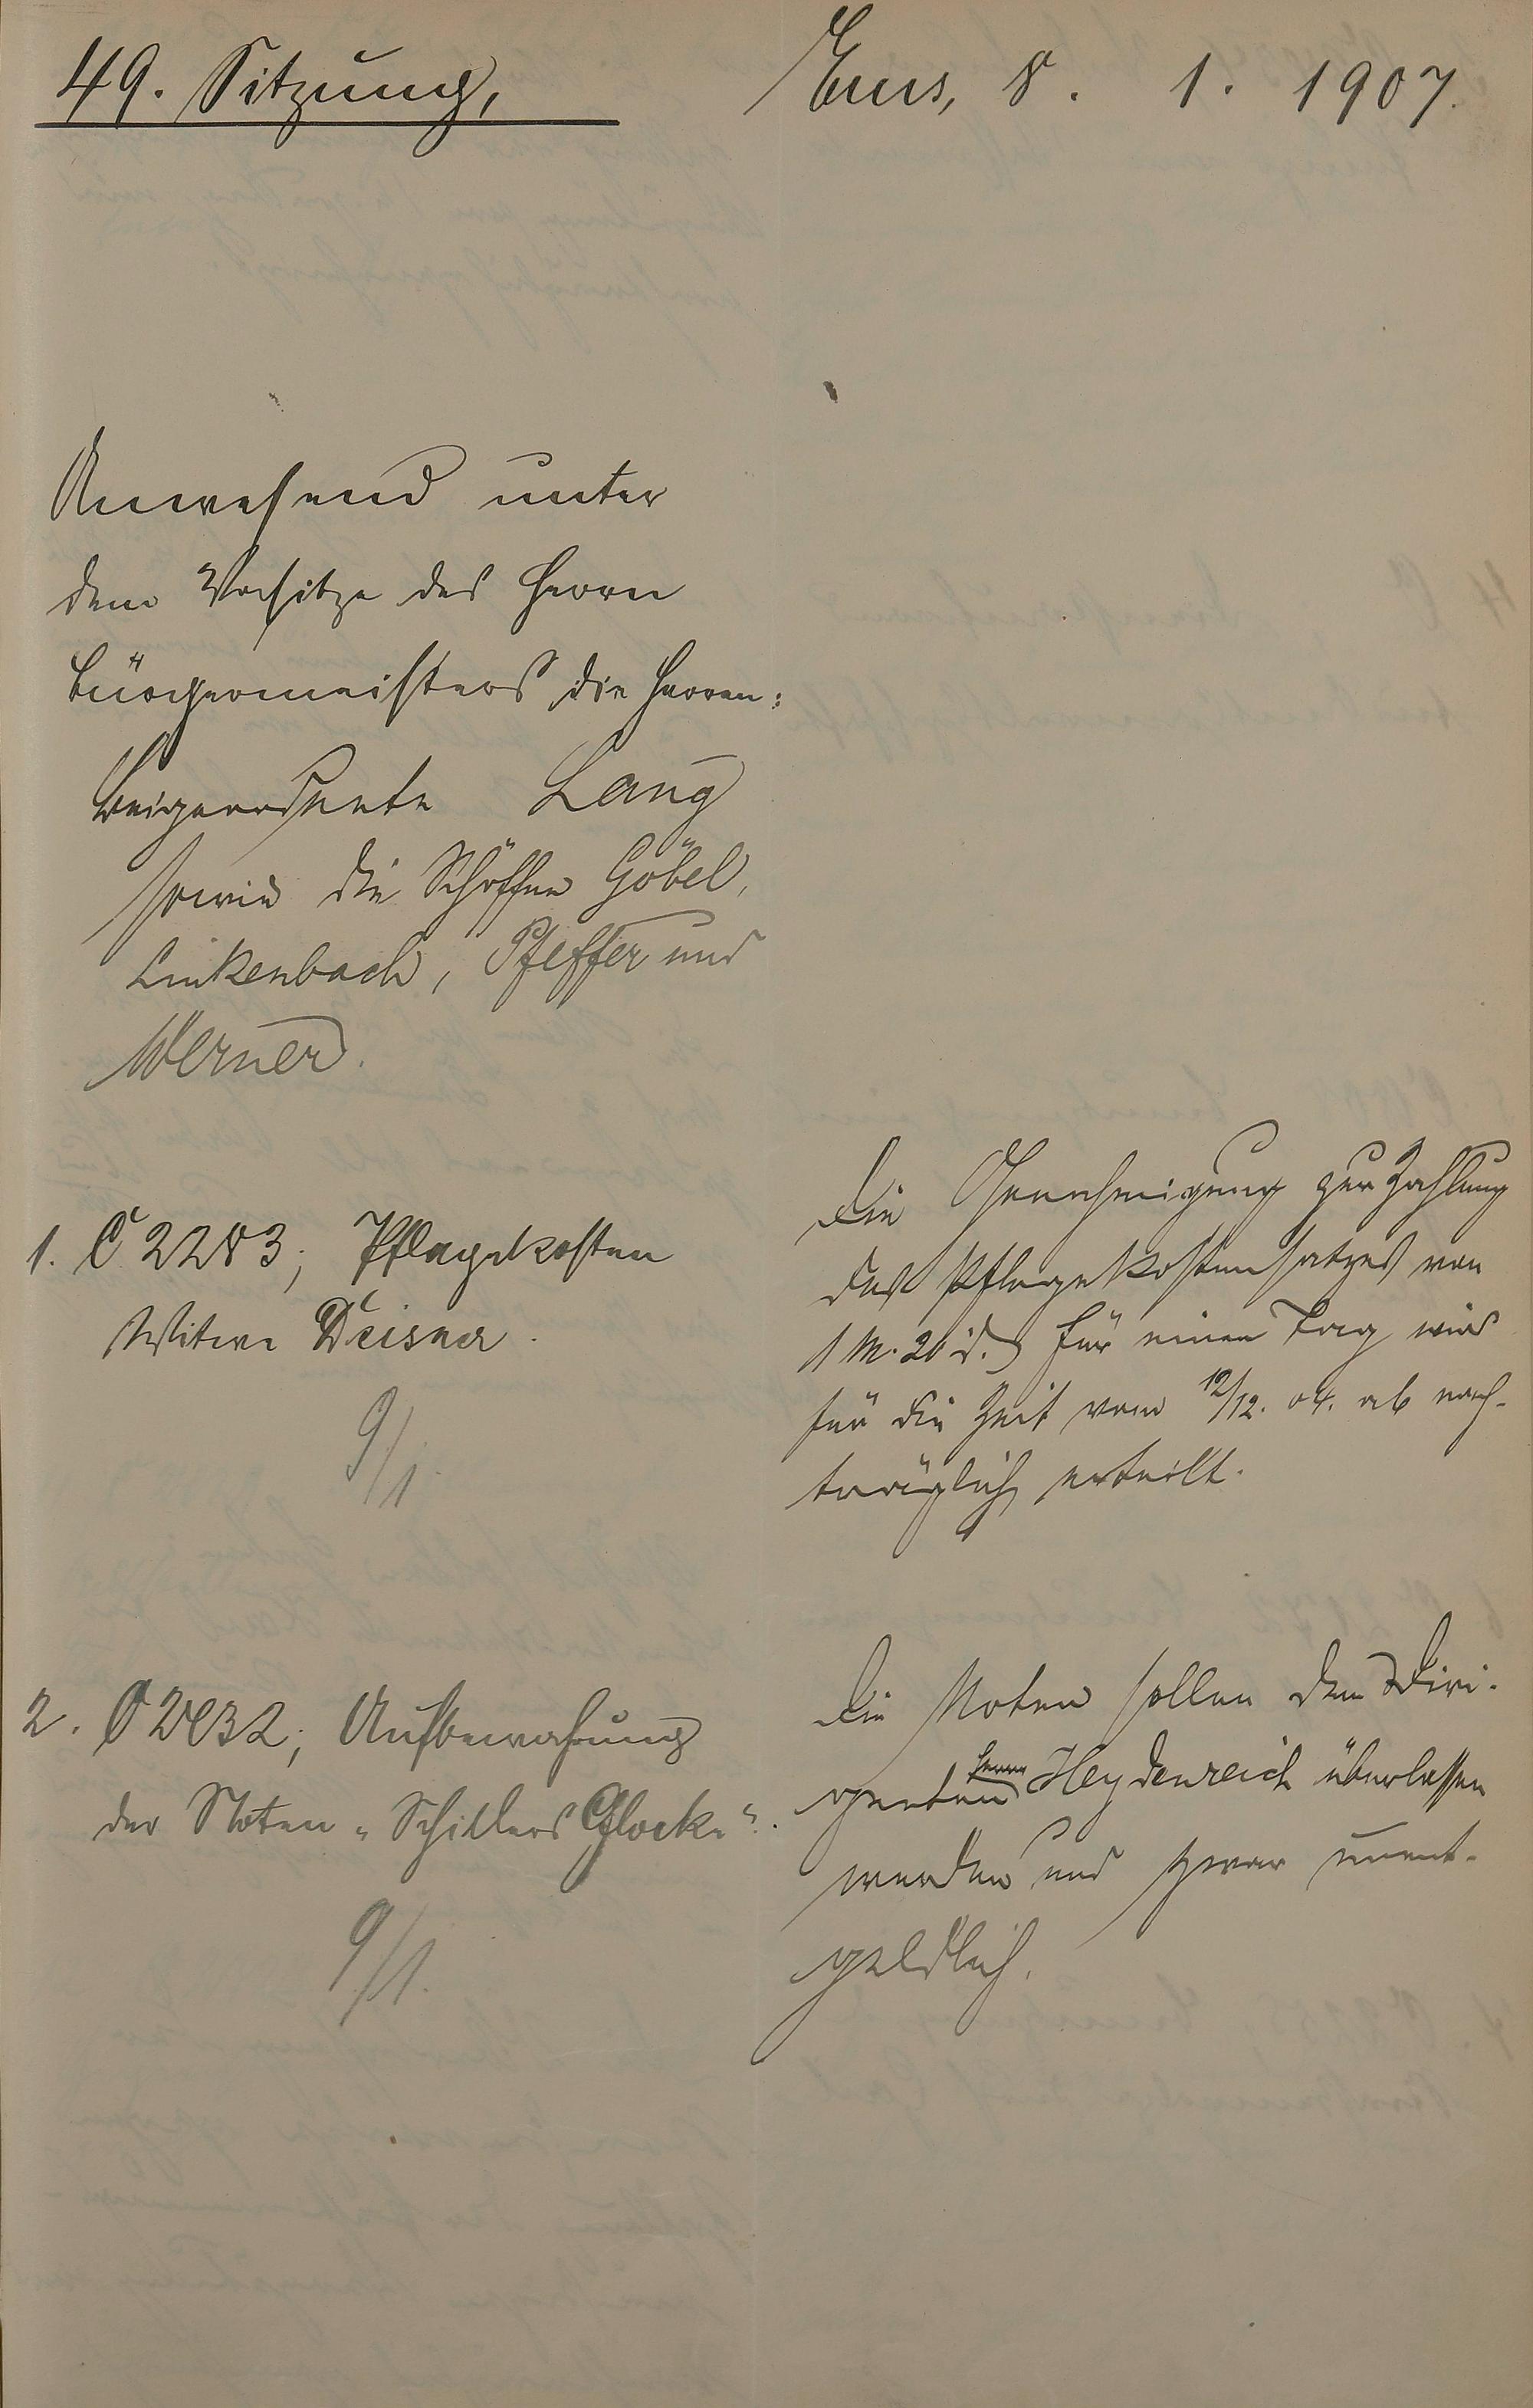 49. Sitzung,
Ems, 8. 1. 1907.
Anwesend unter
dem Vorsitze des Herrn
Bürgermeisters die Herren:
Beigeordnete Lang
sowie die Schöffen Göbel,
Linkenbach, Pfeffer und
Werner.
1. C 2283; Pflegekosten
Witwe Deisner.
9/1.
Die Genehmigung zur Zahlung
des Pflegekostensatzes von
1 M. 20 d. für einen Tag wird
für die Zeit vom 12/12. 04. ab nach-
träglich erteilt.
2. Aufbewahrung
der Noten „Schillers Glocke“.
9/1.
Die Noten sollen dem Diri-
genten Herrn Heydenreich überlassen
werden und zwar unent-
geldlich.